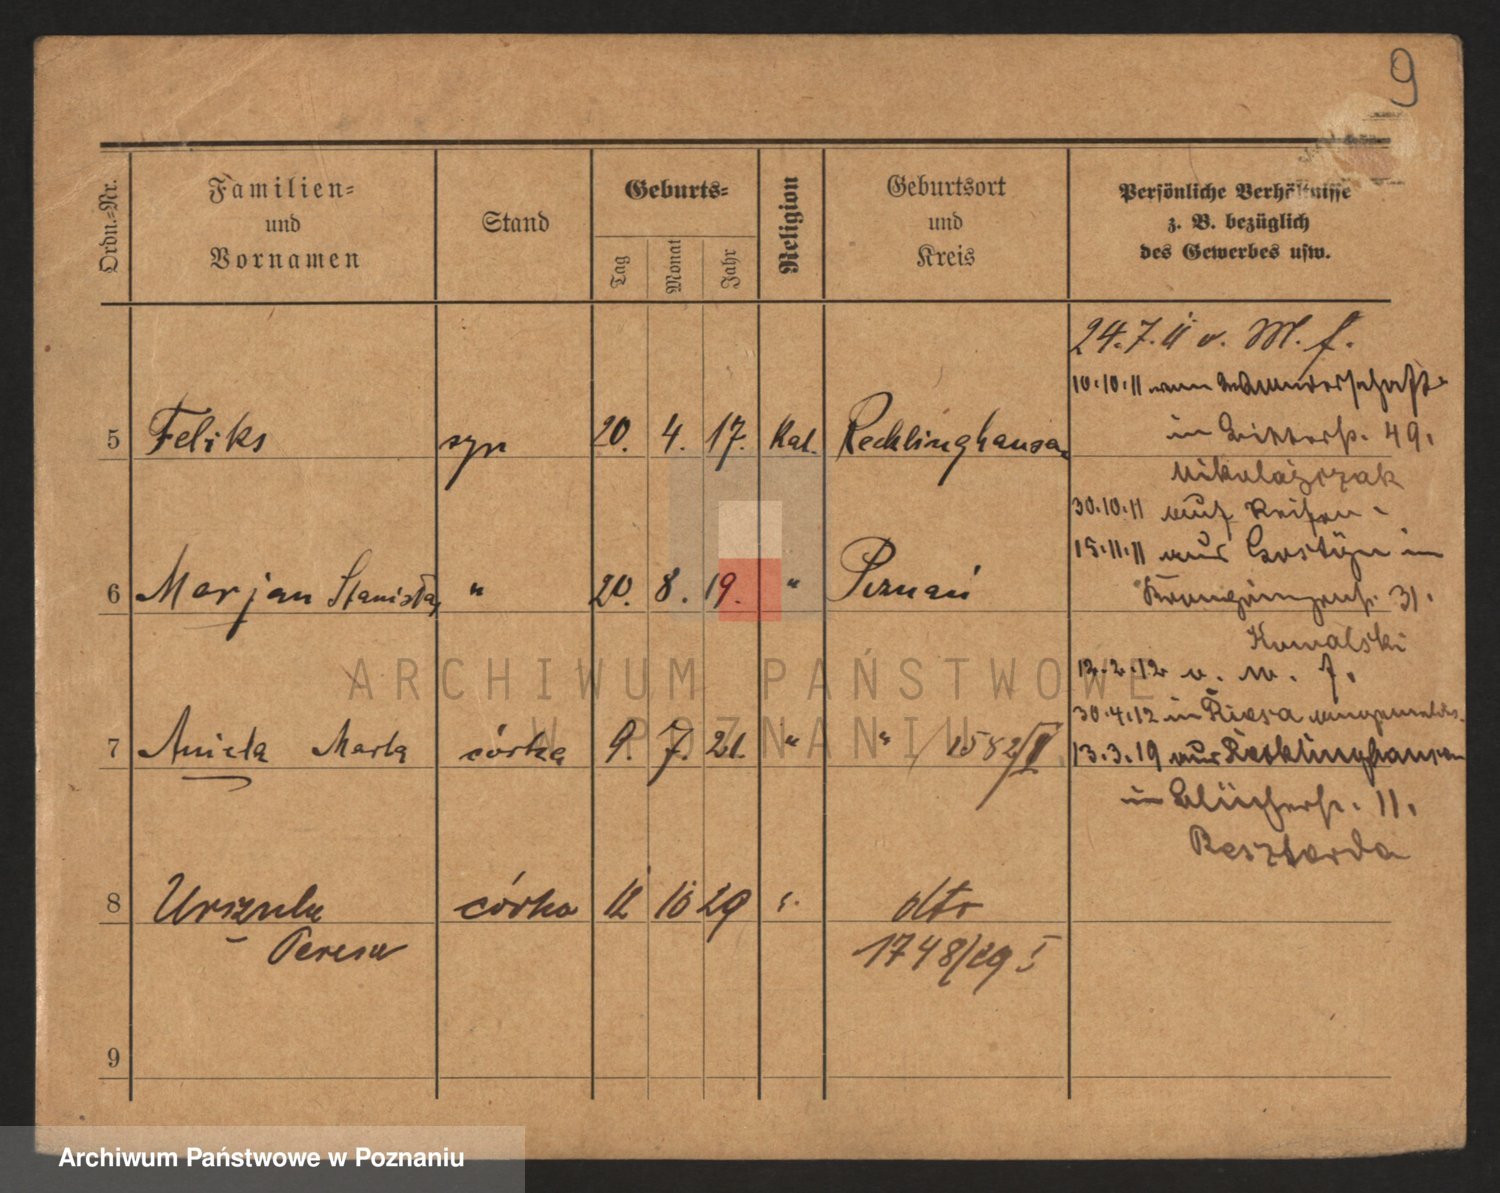 9
Ordn.-Nr.
Familien-
und
Vornamen
Stand
Geburts-
Tag
Monat
Jahr
Religion
Geburtsort
und
Kreis
Persönliche Verhältnisse
z. B. bezüglich
des Gewerbes usw.
24.7.11 v. M. f.
10.10.11 von Wanderschaft
in 49.
5 Feliks syn 20. 4. 17. Kat. Recklinghausen
Mikolajczak
30.10.11 auf Reisen
15.11.11 aus Gostyn in
6 Marjan Stanisław " 20. 8. 19. " Poznań
Kronprinzenstr. 31.
Kowalski
12.2.12 v. M. f.
30.4.12 in Riesa angemeldet.
7 Aniela Marta córka 9. 7. 21. " " 1582/II
13.3.19 aus Recklinghausen
in Blücherstr. 11.
Reszterda
8 Urszula córka 12 10 29 " dto
Teresa 1748/29 I
9
ARCHIWUM PAŃSTWOWE
W POZNANIU
Archiwum Państwowe w Poznaniu